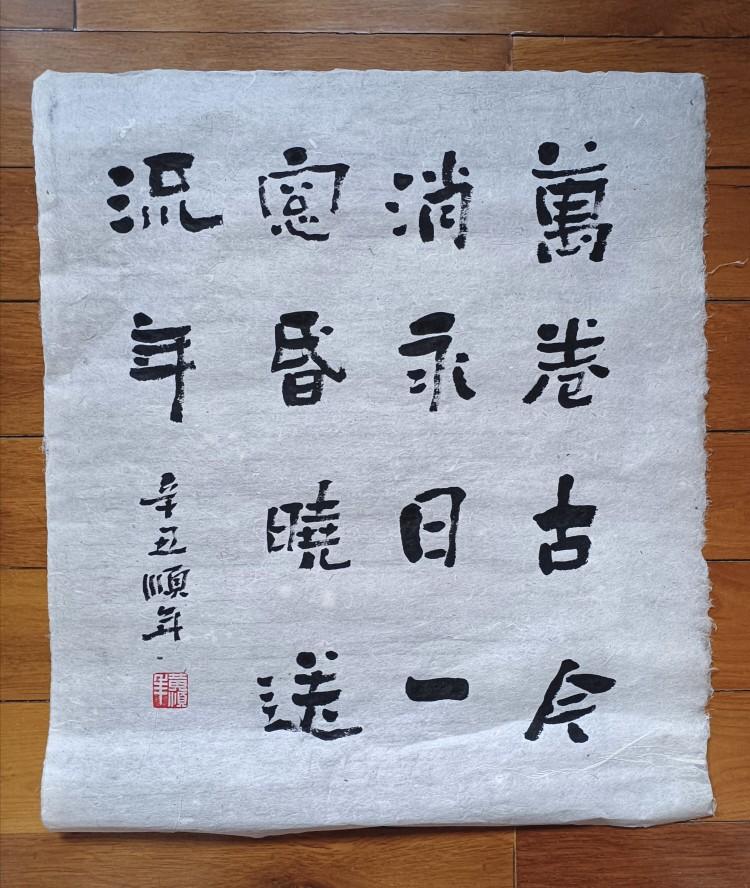 萬卷古今
消永日一
窻昏曉送
流年
辛丑順年
黃順年